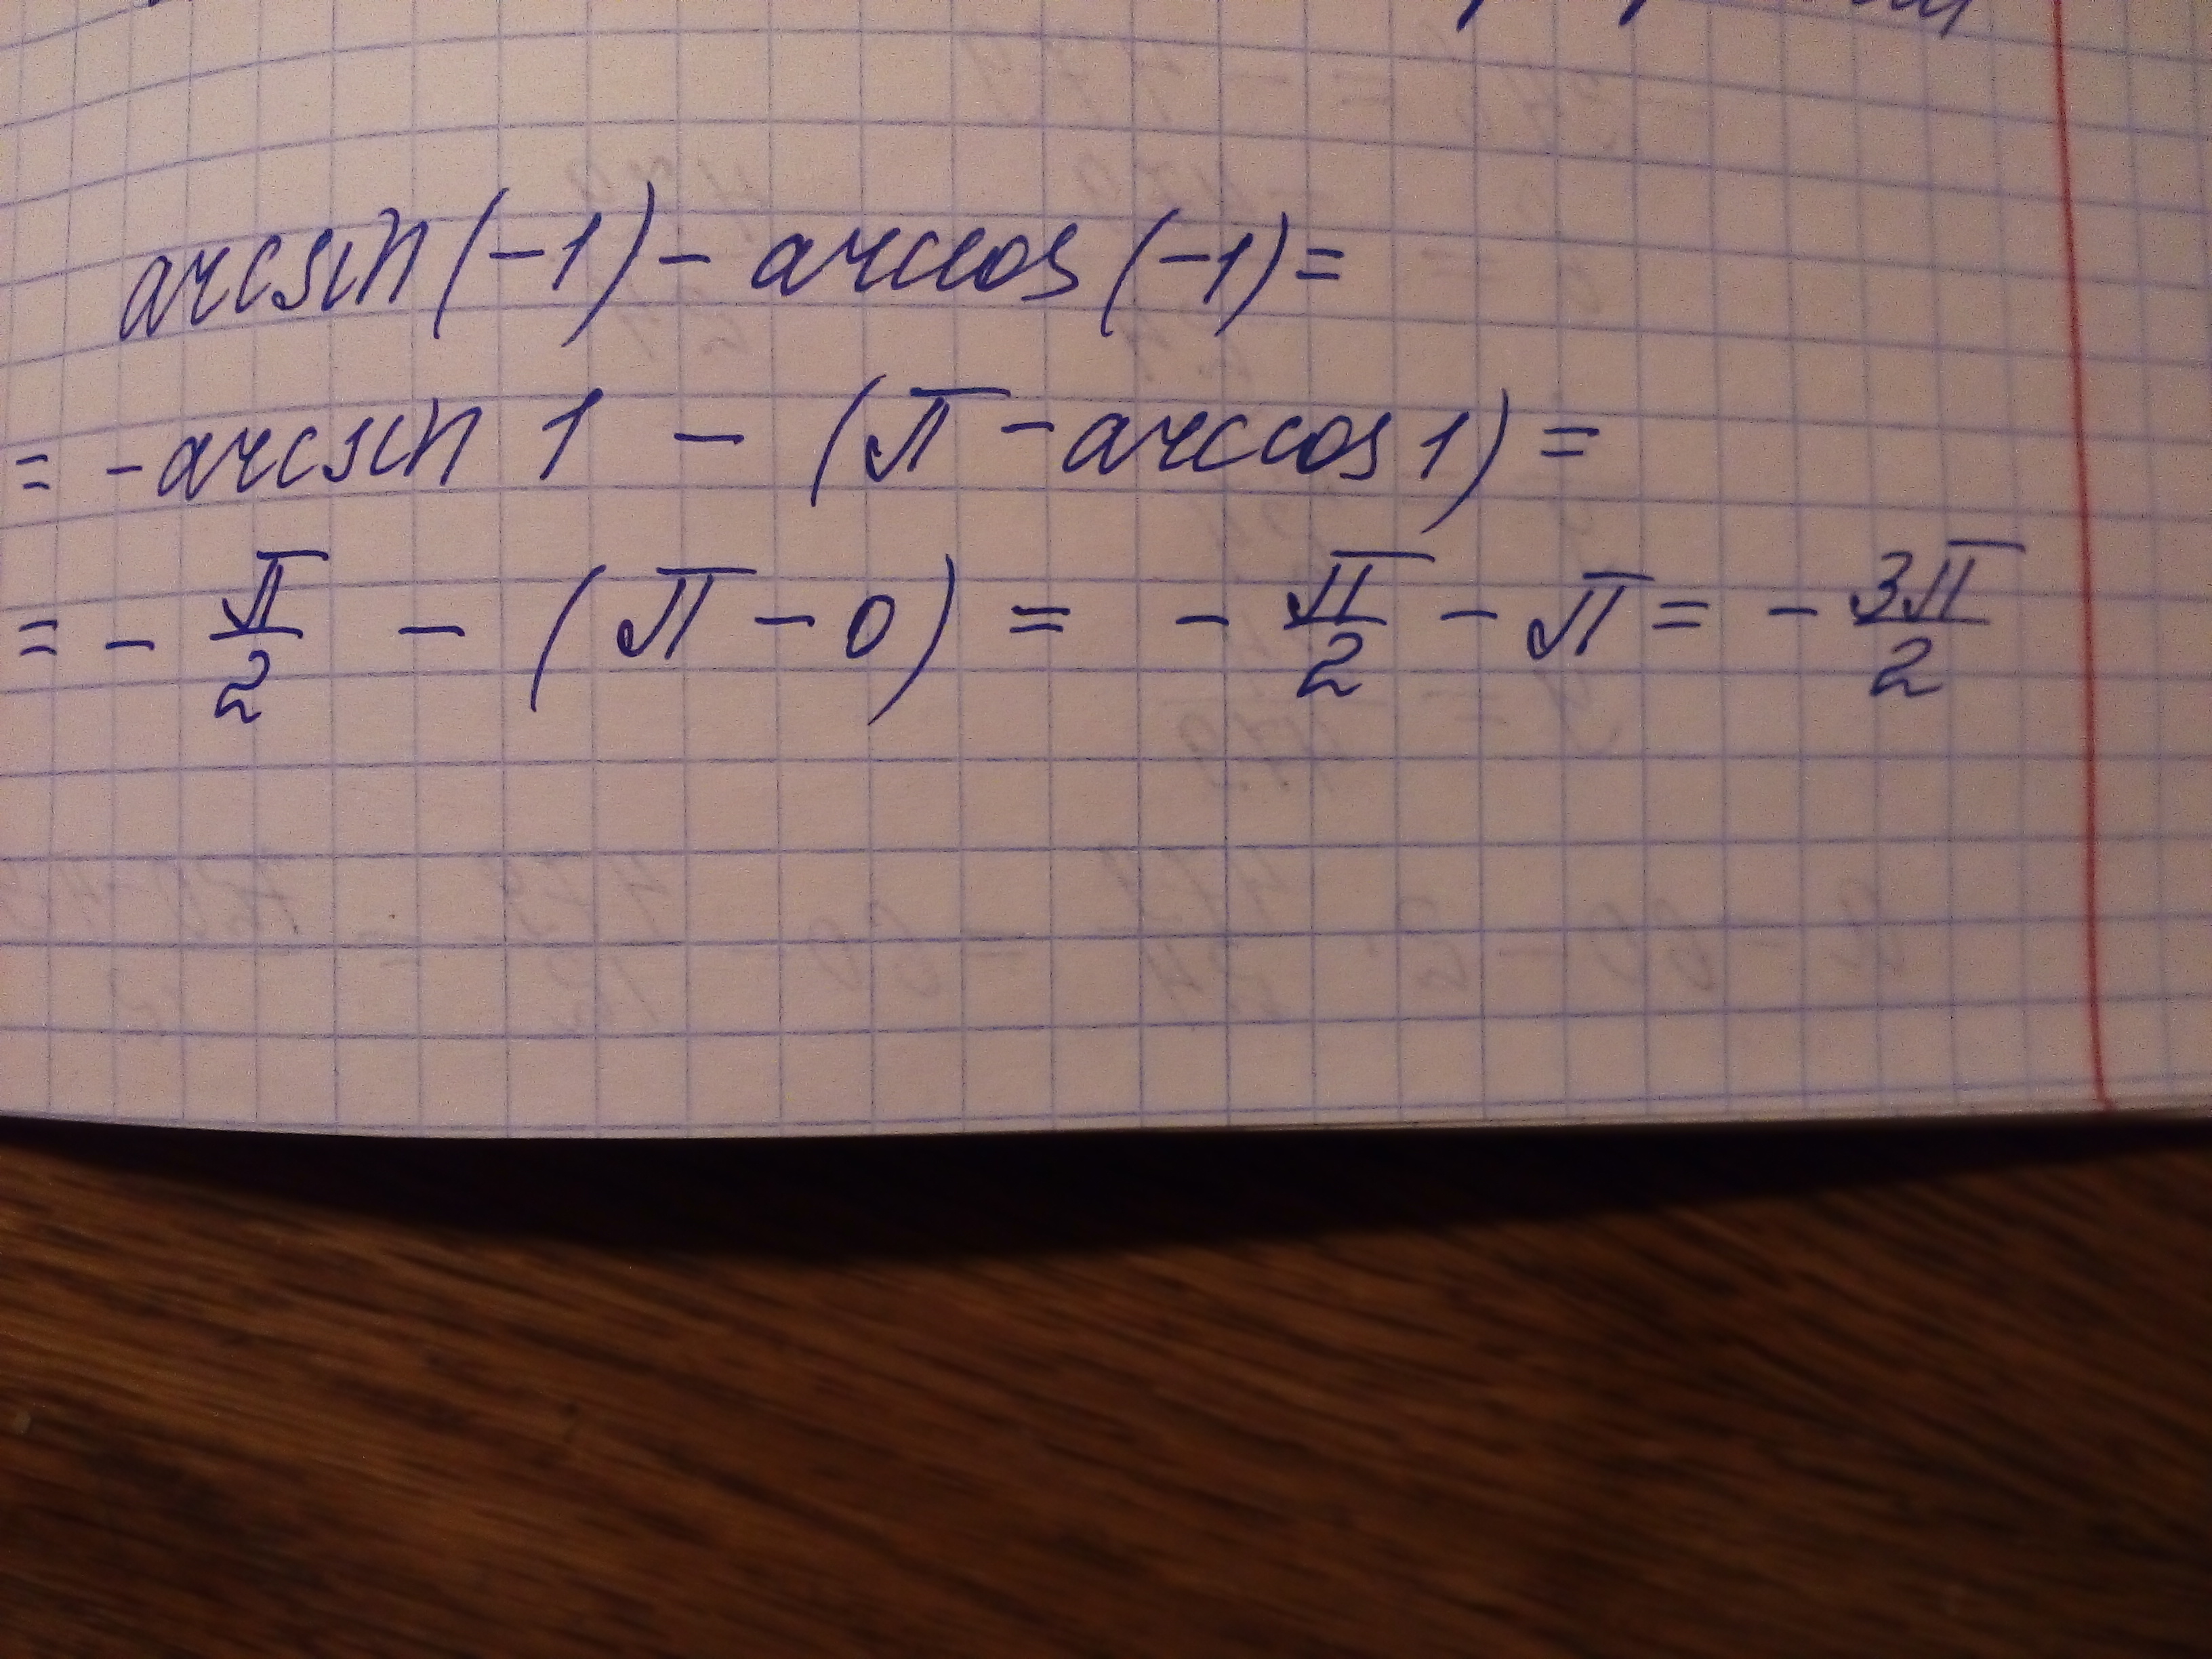 arcsin(-1) - arccos(-1) =
= -arcsin 1 - (π - arccos 1) =
= - π/2 - (π - 0) = - π/2 - π = - 3π/2